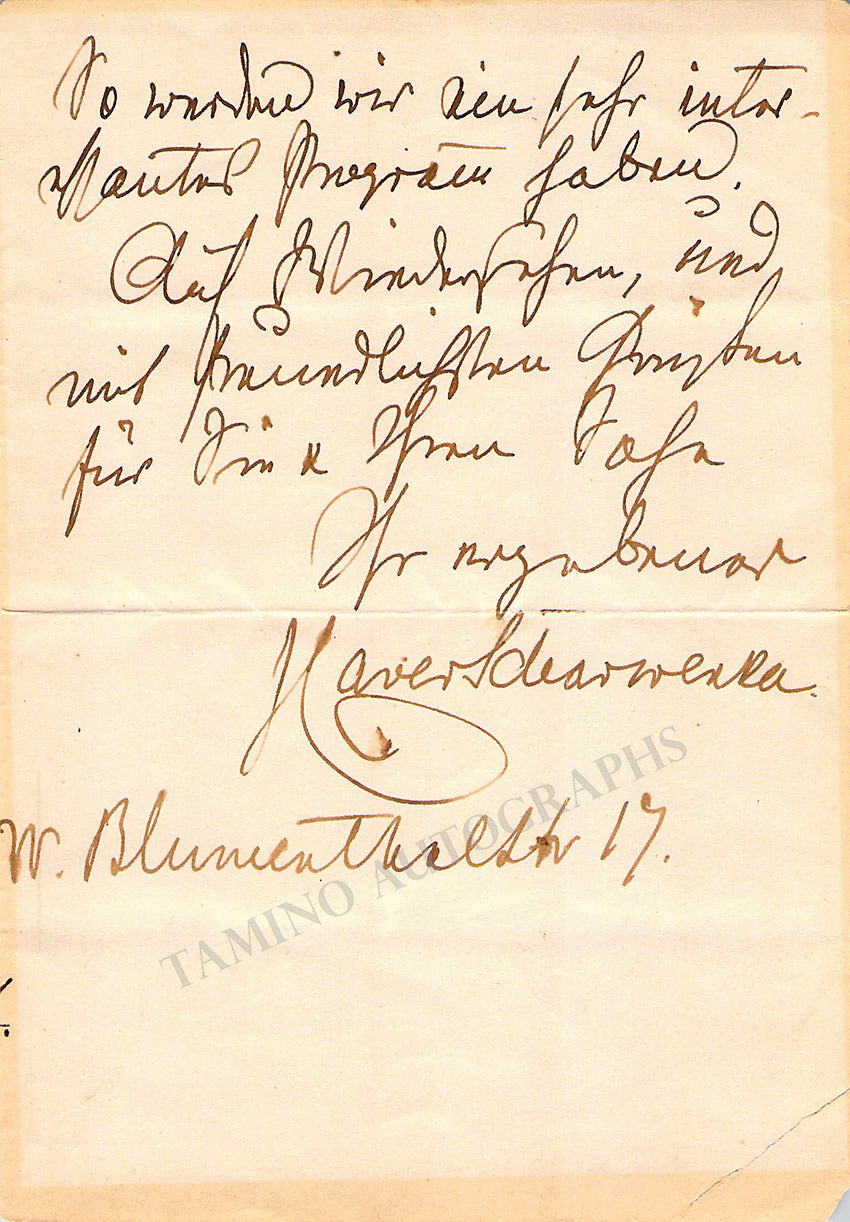 So werden wir ein sehr inter-
essantes Program̅ haben.
Auf Wiedersehen, und
mit freundlichsten Grüßen
für Sie u Ihren Sohn
Ihr ergebener
Xaver Scharwenka.
W. Blumenthalstr 17.
TAMINO AUTOGRAPHS